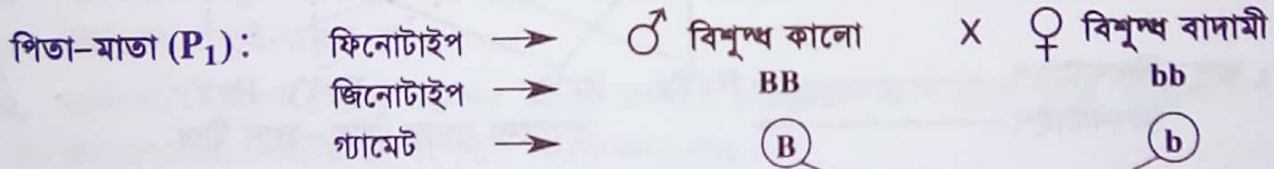 পিতা-মাতা (P₁) : ফিনোটাইপ → ♂ বিশুদ্ধ কালো × ♀ বিশুদ্ধ বাদামী
জিনোটাইপ → BB bb
গ্যামেট → B b